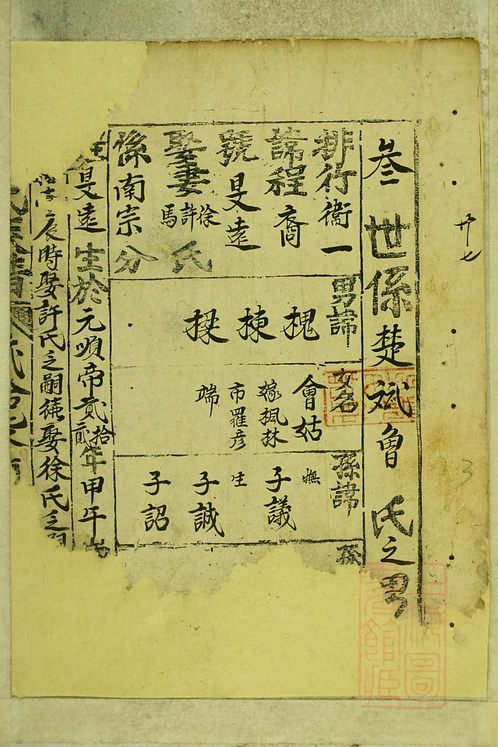 叁世係楚斌魯氏之男
廿七
排行衢一
諱程裔
號旻遠
娶妻徐許馬氏
係南宗分
男諱
女名
孫諱
槐
棟
揆
會姑
嫁楓林
市羅彦
端
撫
子議
生
子誠
子詔
孫
旻遠生於元順帝貳拾貳年甲午
辰時娶許氏之嗣續娶徐氏之
3